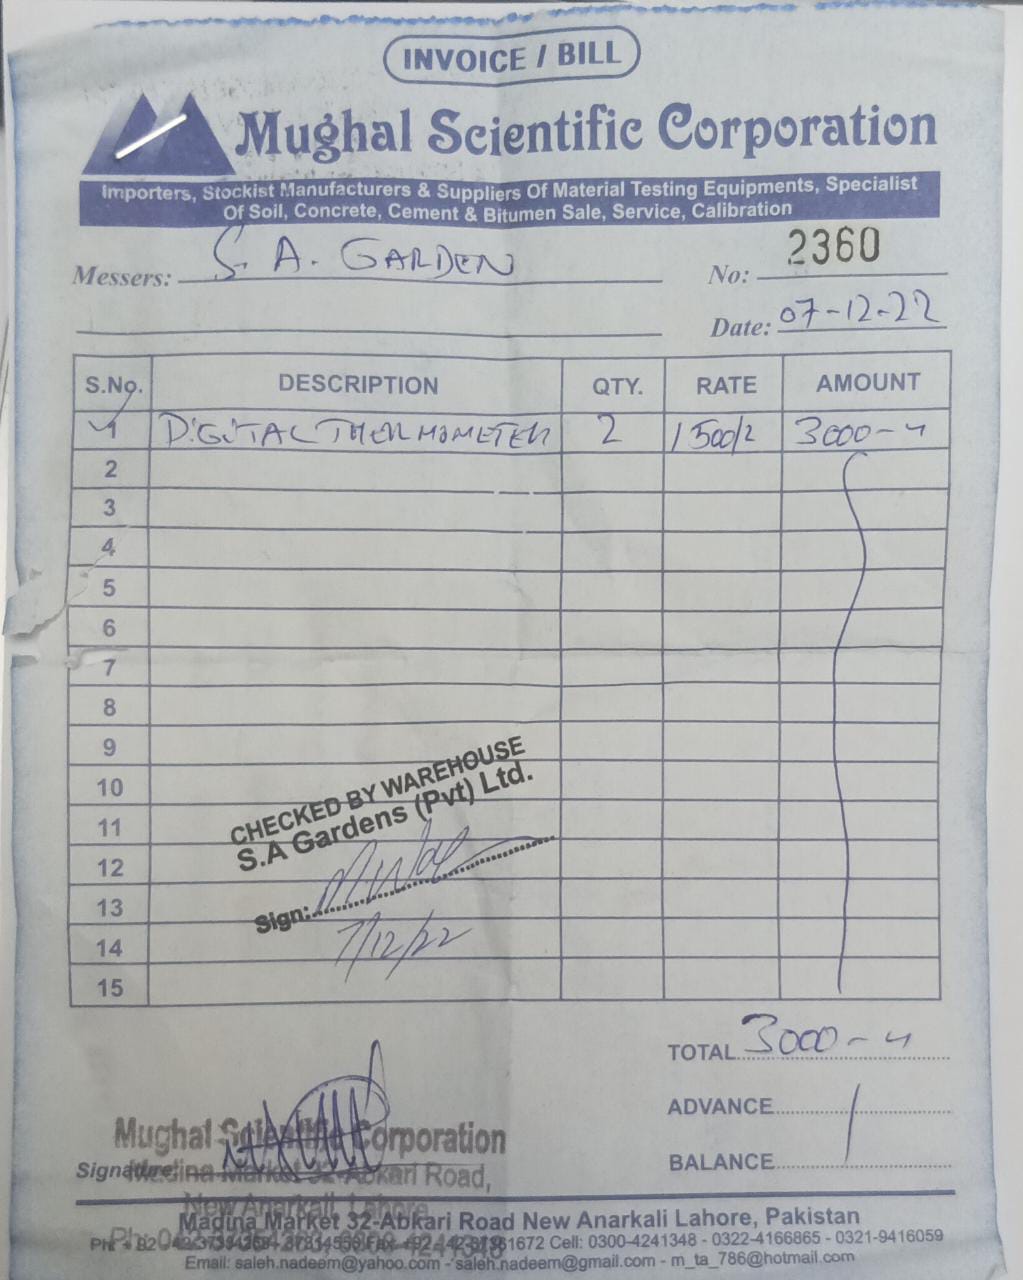 INVOICE / BILL
Mughal Scientific Corporation
Importers, Stockist Manufacturers & Suppliers Of Material Testing Equipments, Specialist
Of Soil, Concrete, Cement & Bitumen Sale, Service, Calibration
Messers: S. A. GARDEN No: 2360
Date: 07-12-22
S.No. DESCRIPTION QTY. RATE AMOUNT
1 DIGITAL THERMOMETER 2 1500/2 3000-
2
3
4
5
6
7
8
9
10
11
12
13
14
15
CHECKED BY WAREHOUSE
S.A Gardens (Pvt) Ltd.
Sign:
7/12/22
TOTAL 3000-
ADVANCE
BALANCE
Mughal Scientific Corporation
Signature
Medina Market 32-Abkari Road,
New Anarkali, Lahore
Madina Market 32-Abkari Road New Anarkali Lahore, Pakistan
Cell: 0300-4241348 - 0322-4166865 - 0321-9416059
Email: saleh.nadeem@yahoo.com - saleh.nadeem@gmail.com - m_ta_786@hotmail.com